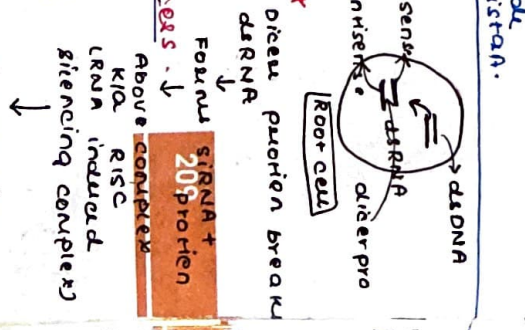 de
istan.
dsDNA
sense
dsRNA
dicerpro
Root cell
Dicer protien break
dsRNA
↓
Forms siRNA +
209 protien
ess. ↓
Above complex
K/a RISC
(RNA induced
silencing complex)
↓